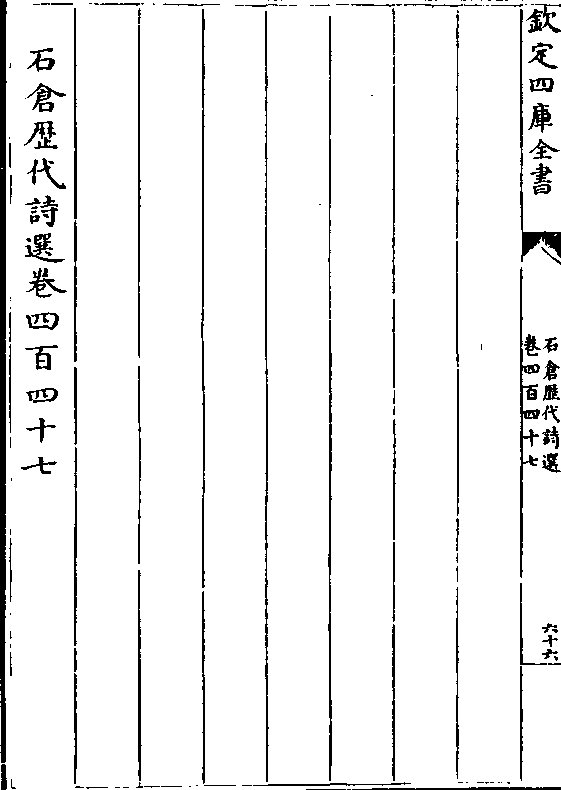 欽定四庫全書
石倉歷代詩選
卷四百四十七
六十六
石倉歷代詩選卷四百四十七